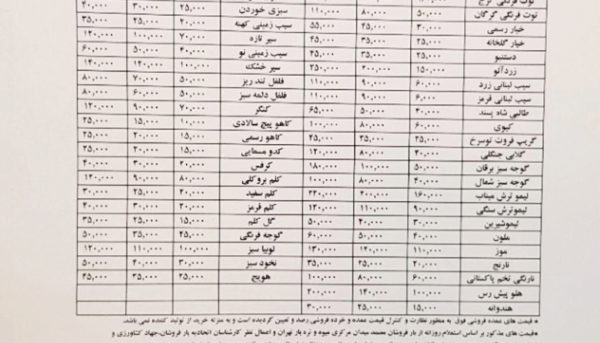 توت فرنگی گرگان ۵۰,۰۰۰ ۸۰,۰۰۰ ۱۱۰,۰۰۰ سبزی خوردن ۲۵,۰۰۰ ۳۰,۰۰۰ ۴۰,۰۰۰
خیار رسمی ۴۵,۰۰۰ ۵۵,۰۰۰ سیب زمینی کهنه ۲۰,۰۰۰ ۲۵,۰۰۰
خیار گلخانه ۲۵,۰۰۰ ۴۵,۰۰۰ سیر تازه ۷۰,۰۰۰ ۱۰۰,۰۰۰ ۱۲۰,۰۰۰
دستنبو ۴۵,۰۰۰ سیب زمینی نو ۴۰,۰۰۰ ۵۰,۰۰۰ ۶۰,۰۰۰
زردآلو ۱۵۰,۰۰۰ ۲۰۰,۰۰۰ ۲۵۰,۰۰۰ سیر خشک ۱۰۰,۰۰۰ ۱۴۰,۰۰۰
سیب لبنانی زرد ۶۰,۰۰۰ ۹۰,۰۰۰ ۱۱۰,۰۰۰ فلفل تند ریز ۵۰,۰۰۰ ۷۰,۰۰۰ ۸۰,۰۰۰
سیب لبنانی قرمز ۹۰,۰۰۰ ۱۱۰,۰۰۰ فلفل دلمه سبز ۵۰,۰۰۰ ۶۰,۰۰۰ ۸۰,۰۰۰
طالبی شاه پسند ۴۰,۰۰۰ ۵۰,۰۰۰ ۶۵,۰۰۰ کنگر ۷۰,۰۰۰ ۹۰,۰۰۰ ۱۲۰,۰۰۰
کیوی ۶۰,۰۰۰ ۸۰,۰۰۰ ۱۰۰,۰۰۰ کاهو پیچ سالادی ۱۰,۰۰۰ ۱۵,۰۰۰ ۲۵,۰۰۰
گریپ فروت توسرخ ۲۵,۰۰۰ ۳۵,۰۰۰ ۴۵,۰۰۰ کاهو رسمی ۱۵,۰۰۰ ۲۰,۰۰۰ ۲۵,۰۰۰
گلابی جنگلی ۴۰,۰۰۰ ۸۰,۰۰۰ ۱۲۰,۰۰۰ کدو مسمایی ۱۵,۰۰۰ ۲۰,۰۰۰ ۲۵,۰۰۰
گوجه سبز برقان ۶۰,۰۰۰ ۱۰۰,۰۰۰ ۱۸۰,۰۰۰ کرفس ۲۰,۰۰۰ ۳۰,۰۰۰ ۴۰,۰۰۰
گوجه سبز شمال ۴۰,۰۰۰ ۸۰,۰۰۰ ۱۰۰,۰۰۰ کلم بروکلی ۸۰,۰۰۰ ۹۰,۰۰۰ ۱۲۰,۰۰۰
لیمو ترش میناب ۱۶۰,۰۰۰ ۲۰۰,۰۰۰ ۲۲۰,۰۰۰ کلم سفید ۲۰,۰۰۰ ۳۰,۰۰۰ ۴۰,۰۰۰
لیموترش سنگی ۹۰,۰۰۰ ۱۱۰,۰۰۰ ۱۲۰,۰۰۰ کلم قرمز ۲۰,۰۰۰ ۳۰,۰۰۰ ۴۰,۰۰۰
لیموشیرین ۳۰,۰۰۰ ۴۰,۰۰۰ ۵۰,۰۰۰ گل کلم ۱۵,۰۰۰ ۲۵,۰۰۰ ۳۵,۰۰۰
ملون ۴۰,۰۰۰ ۵۰,۰۰۰ ۶۰,۰۰۰ گوجه فرنگی ۲۵,۰۰۰ ۳۵,۰۰۰ ۵۰,۰۰۰
موز ۱۱۰,۰۰۰ ۱۲۰,۰۰۰ ۱۳۰,۰۰۰ لوبیا سبز ۱۰۰,۰۰۰ ۱۱۰,۰۰۰ ۱۲۰,۰۰۰
نارنج ۲۰,۰۰۰ ۲۵,۰۰۰ ۳۵,۰۰۰ نخود سبز ۳۰,۰۰۰ ۴۰,۰۰۰ ۵۰,۰۰۰
نارنگی تخم پاکستانی ۶۰,۰۰۰ ۸۰,۰۰۰ ۱۰۰,۰۰۰ هویج ۲۵,۰۰۰ ۳۵,۰۰۰
هلو پیش رس ۱۰۰,۰۰۰ ۱۴۰,۰۰۰ ۲۰۰,۰۰۰
هندوانه ۱۵,۰۰۰ ۲۵,۰۰۰ ۳۰,۰۰۰
*قیمت های عمده فروشی فوق به منظور نظارت و کنترل قیمت عمده و خرده فروشی رصد و تعیین گردیده است و به منزله خرید از تولید کننده نمی باشد.
*قیمت های مذکور بر اساس استعلام روزانه از بار فروشان معتمد میدان مرکزی میوه و تره بار تهران و اعمال نظر کارشناسان اتحادیه بار فروشان،جهاد کشاورزی و